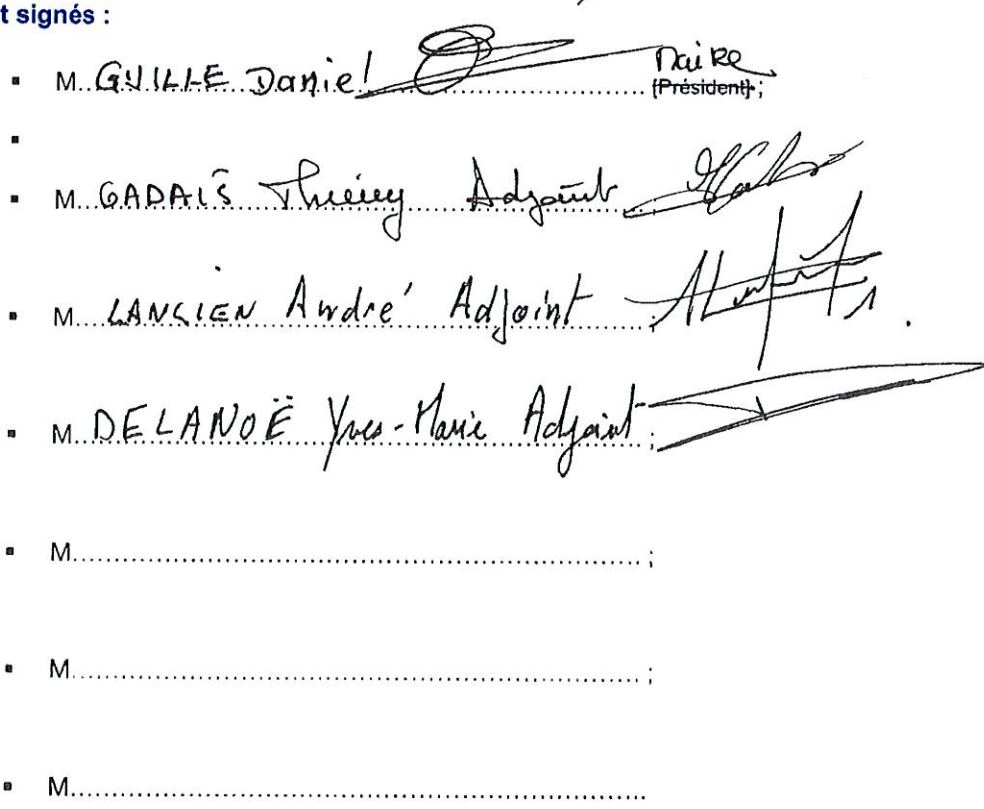 t signés :
▪ M. GUILLE Daniel ........................ Maire
(Président) ;
▪
▪ M. GADAIS Thierry Adjoint ;
▪ M. LANCIEN André Adjoint ;
▪ M. DELANOË Yves-Marie Adjoint ;
▪ M................................................................ ;
▪ M................................................................ ;
▪ M................................................................